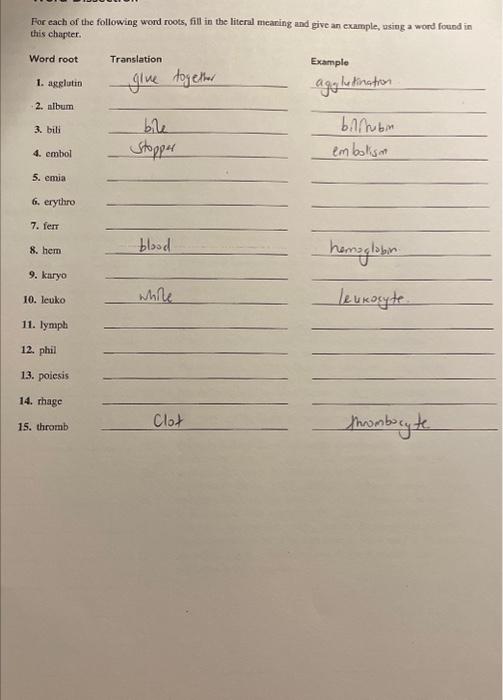 For each of the following word roots, fill in the literal meaning and give an example, using a word found in
this chapter.
Word root Translation Example
1. agglutin glue together agglutination
2. album
3. bili bile bilirubin
4. embol Stopper embolism
5. emia
6. erythro
7. ferr
8. hem blood hemoglobin
9. karyo
10. leuko white leukocyte
11. lymph
12. phil
13. poiesis
14. rhage
15. thromb Clot thrombocyte